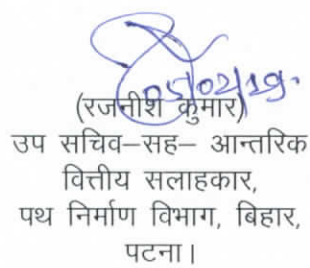 05/02/19.
(रजनीश कुमार)
उप सचिव–सह– आन्तरिक
वित्तीय सलाहकार,
पथ निर्माण विभाग, बिहार,
पटना।